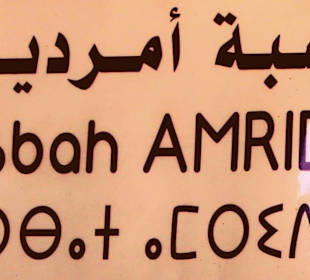 صبة أمرديـ
sbah AMRID
ⵙⴱⴰⵜ ⴰⵎⵔⵉⴷ